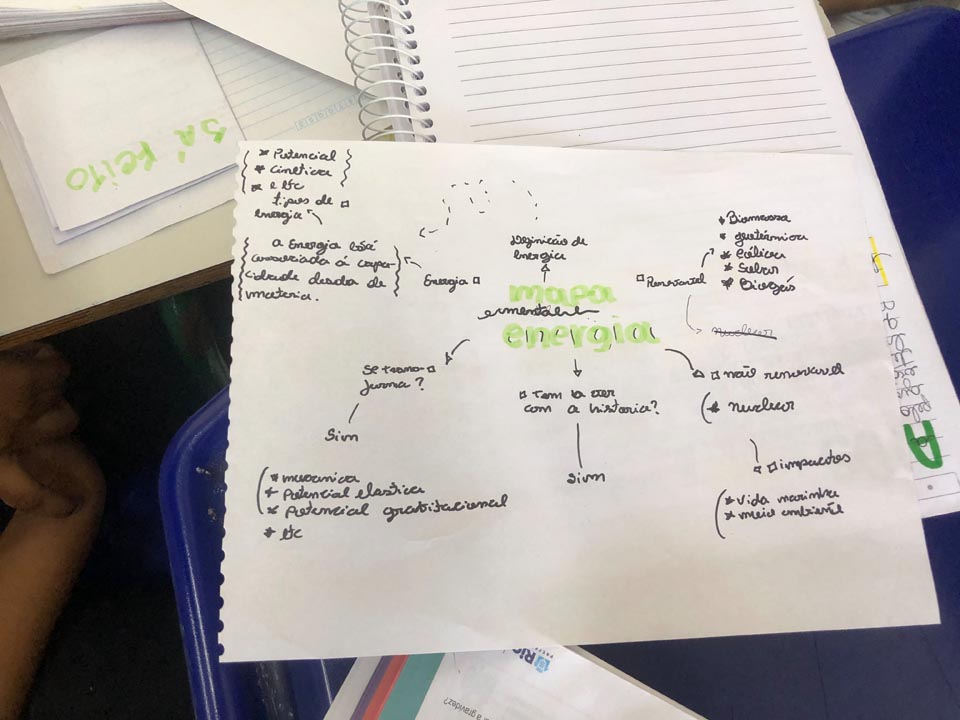 Já feito
* Potencial
* Cinética
* e etc
tipos de
energia
a Energia está
associada á capa-
cidade dessa de
matéria.
Energia
Definição de
Energia
mapa
mental
energia
Renovavel
* Biomassa
* geotérmica
* Eólica
* Solar
* Biogás
nuclear
não renovavel
* nuclear
impactos
* vida marinha
* meio ambiente
Tem a ver
com a historia?
Sim
Se trans-
forma?
Sim
* mecanica
* Potencial elastica
* Potencial gravitacional
* etc
a gravidez?